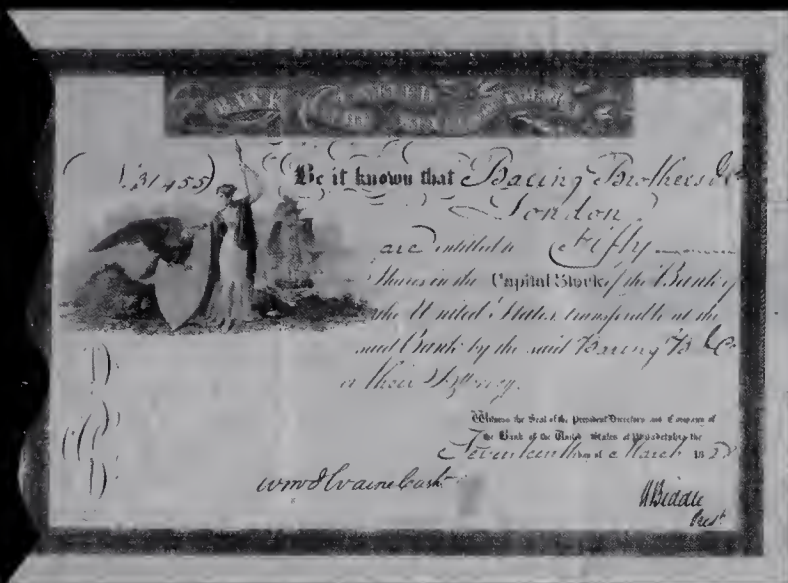 BANK UNITED STATES
№ 31455) Be it known that Baring Brothers & Co
London.
are entitled to Fifty
Shares in the Capital Stock of the Bank of
the United States, transferable at the
said Bank by the said Baring B & Co
or their Attorney.
Witness the Seal of the President Directors and Company of
the Bank of the United States at Philadelphia the
Seventeenth day of March 18
Wm McIlvaine Cash
N Biddle
Prest